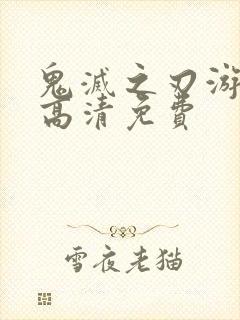 鬼滅之刃游
高清免費
雪夜老猫